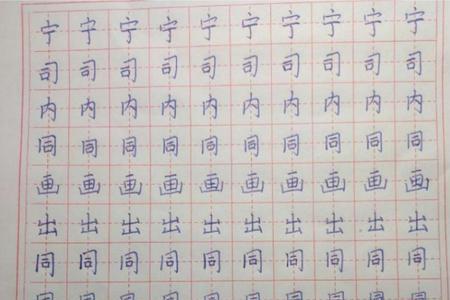 宁宁宁宁宁宁宁宁宁宁
司司司司司司司司司司
内内内内内内内内内内
同同同同同同同同同同
画画画画画画画画画画
出出出出出出出出出出
同同同同同同同同同同